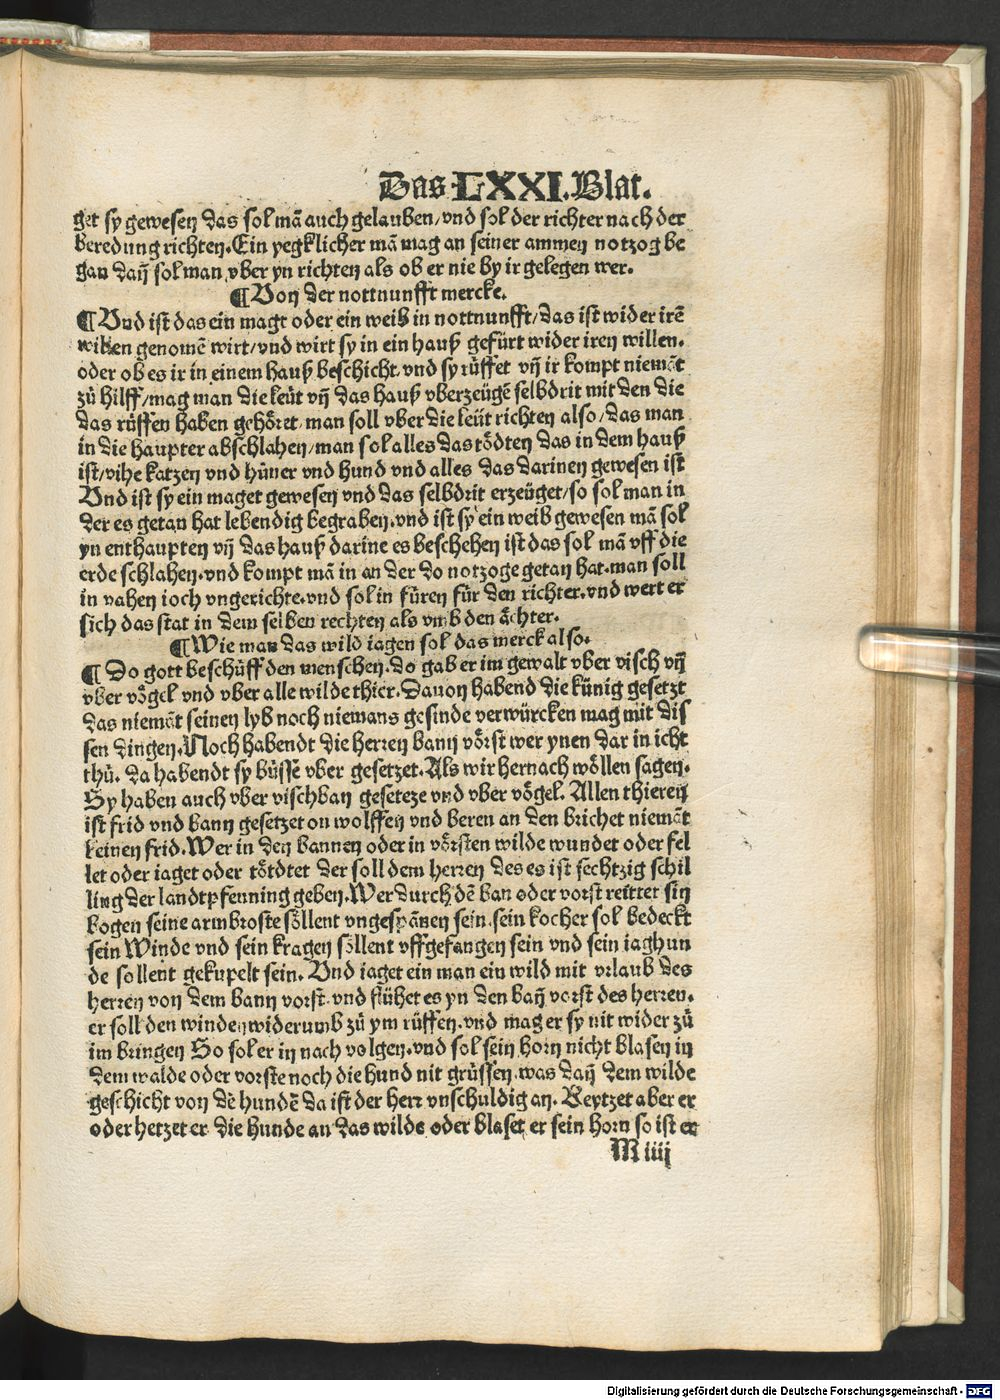 Das LXXI. Blat.
get sy gewesen das sol mā auch gelauben/vnd sol der richter nach der
beredung richten. Ein yegklicher mā mag an seiner ammen notzog be
gan dañ sol man vber yn richten als ob er nie by ir gelegen wer.
¶ Von der nottnunfft mercke.
¶ Vnd ist das ein magt oder ein weib in nottnunfft/das ist wider irē
willen genomē wirt/vnd wirt sy in ein hauß gefürt wider iren willen.
oder ob es ir in einem hauß beschicht. vnd sy rüffet vñ ir kompt niemāt
zü hilff/mag man die leüt vñ das hauß vberzeügē selbdrit mit den die
das rüffen haben gehöret. man soll vber die leüt richten also/das man
in die haupter abschlahen/man sol alles das tödten das in dem hauß
ist/vihe katzen vnd hüner vnd hund vnd alles das darinen gewesen ist
Vnd ist sy ein maget gewesen vnd das selbdrit erzeüget/so sol man in
der es getan hat lebendig begraben. vnd ist sy ein weib gewesen mā sol
yn enthaupten vñ das hauß darine es beschehen ist das sol mā vff die
erde schlahen. vnd kompt mā in an der do notzoge getan hat. man soll
in vahen ioch vngerichte. vnd sol in füren für den richter. vnd wert er
sich das stat in dem selben rechten als vmb den ächter.
¶ Wie man das wild iagen sol das merck also.
¶ Do gott beschüff den menschen. do gab er im gewalt vber visch vñ
vber vögel vnd vber alle wilde thier. Dauon habend die künig gesetzt
das niemāt seinen lyb noch niemans gesinde verwürcken mag mit dis
sen dingen. Noch habendt die herren bann vörst wer ynen dar in icht
thü. da habendt sy büsse vber gesetzet. Als wir hernach wöllen sagen.
Sy haben auch vber vischban geseteze vnd vber vögel. Allen thieren
ist frid vnd bann gesetzet on wolffen vnd beren an den brichet niemāt
keinen frid. Wer in den bannen oder in vörsten wilde wundet oder fel
let oder iaget oder tötdtet der soll dem herren des es ist sechtzig schil
ling der landtpfenning geben. Wer durch dē ban oder vorst reittet sin
bogen seine armbroste söllent vngespāñen sein. sein kocher sol bedeckt
sein Winde vnd sein kragen söllent vffgefangen sein vnd sein iaghun
de sollent gekupelt sein. Vnd iaget ein man ein wild mit vrlaub des
herren von dem bann vorst. vnd flühet es yn den bañ vorst des herren.
er soll den winden widerumb zü ym rüffen. vnd mag er sy nit wider zü
im bringen So sol er in nach volgen. vnd sol sein horn nicht blasen in
dem walde oder vorste noch die hund nit grüssen. was dañ dem wilde
geschicht von dē hundē da ist der herr vnschuldig an. Beytzet aber er
oder hetzet er die hunde an das wilde oder blaset er sein horn so ist er
M iiij
Digitalisierung gefördert durch die Deutsche Forschungsgemeinschaft - DFG